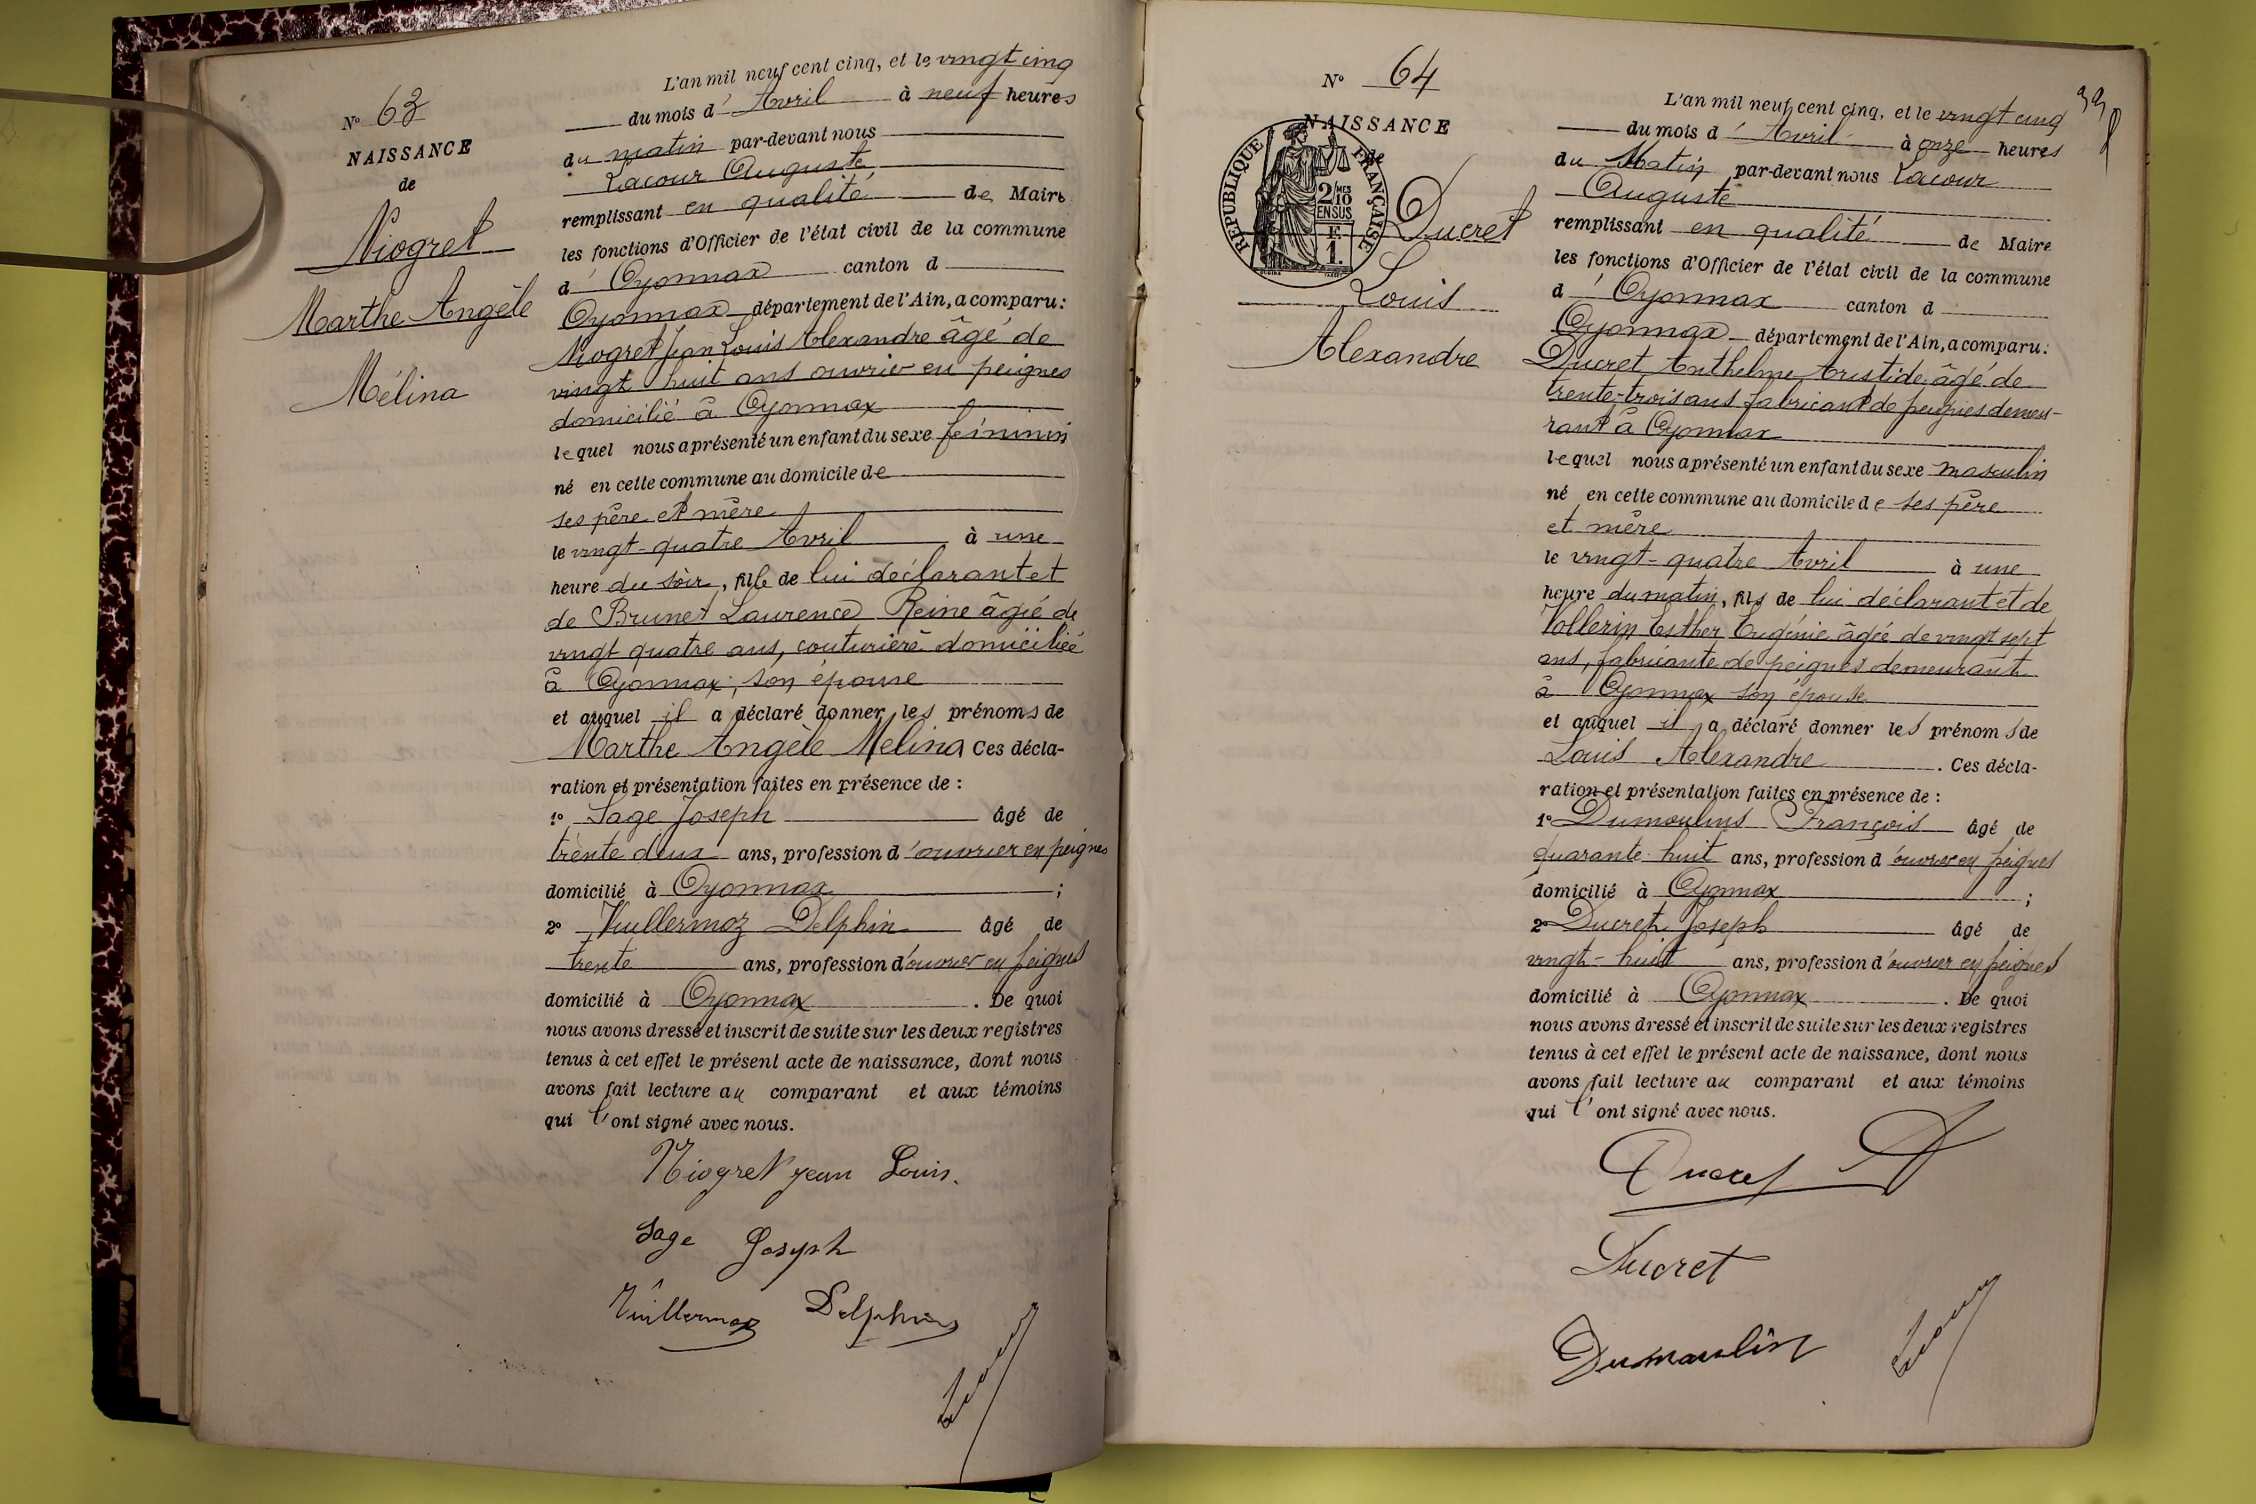 N° 63
NAISSANCE
de
Niogret
Marthe Angèle
Mélina
L'an mil neuf cent cinq, et le vingt cinq
du mois d' Avril à neuf heures
du matin par-devant nous
Lacour Auguste
remplissant en qualité de Maire
les fonctions d'Officier de l'état civil de la commune
d' Oyonnax canton d
Oyonnax département de l'Ain, a comparu:
Niogret Jean Louis Alexandre âgé de
vingt huit ans ouvrier en peignes
domicilié à Oyonnax
lequel nous a présenté un enfant du sexe féminin
né en cette commune au domicile de
ses père et mère
le vingt-quatre Avril à une
heure du soir, fille de lui déclarant et
de Brunet Laurence Reine âgé de
vingt quatre ans, couturière domiciliée
à Oyonnax, son épouse
et auquel il a déclaré donner les prénoms de
Marthe Angèle Mélina Ces décla-
ration et présentation faites en présence de :
1° Sage Joseph âgé de
trente deux ans, profession d'ouvrier en peignes
domicilié à Oyonnax ;
2° Vuillermoz Delphin âgé de
trente ans, profession d'ouvrier en peignes
domicilié à Oyonnax . De quoi
nous avons dressé et inscrit de suite sur les deux registres
tenus à cet effet le présent acte de naissance, dont nous
avons fait lecture au comparant et aux témoins
qui l'ont signé avec nous.
Niogret jean Louis.
Sage Joseph
Vuillermoz Delphin
N° 64
NAISSANCE
de
REPUBLIQUE FRANÇAISE
2/10 MES
EN SUS
F.
1.
Ducret
Louis
Alexandre
L'an mil neuf cent cinq, et le vingt cinq
du mois d' Avril à onze heures
du Matin par-devant nous Lacour
Auguste
remplissant en qualité de Maire
les fonctions d'Officier de l'état civil de la commune
d' Oyonnax canton d
Oyonnax département de l'Ain, a comparu:
Ducret Anthelme Aristide âgé de
trente-trois ans fabricant de peignes demeu-
rant à Oyonnax
lequel nous a présenté un enfant du sexe masculin
né en cette commune au domicile de ses père
et mère
le vingt-quatre Avril à une
heure du matin, fils de lui déclarant et de
Vollerin Esther Eugénie âgée de vingt sept
ans, fabricante de peignes demeurant
à Oyonnax son épouse
et auquel il a déclaré donner les prénoms de
Louis Alexandre . Ces décla-
ration et présentation faites en présence de :
1° Dumoulins François âgé de
quarante huit ans, profession d'ouvrier en peignes
domicilié à Oyonnax ;
2° Ducret Joseph âgé de
vingt-huit ans, profession d'ouvrier en peignes
domicilié à Oyonnax . De quoi
nous avons dressé et inscrit de suite sur les deux registres
tenus à cet effet le présent acte de naissance, dont nous
avons fait lecture au comparant et aux témoins
qui l'ont signé avec nous.
Ducret A
Ducret
Dumoulin